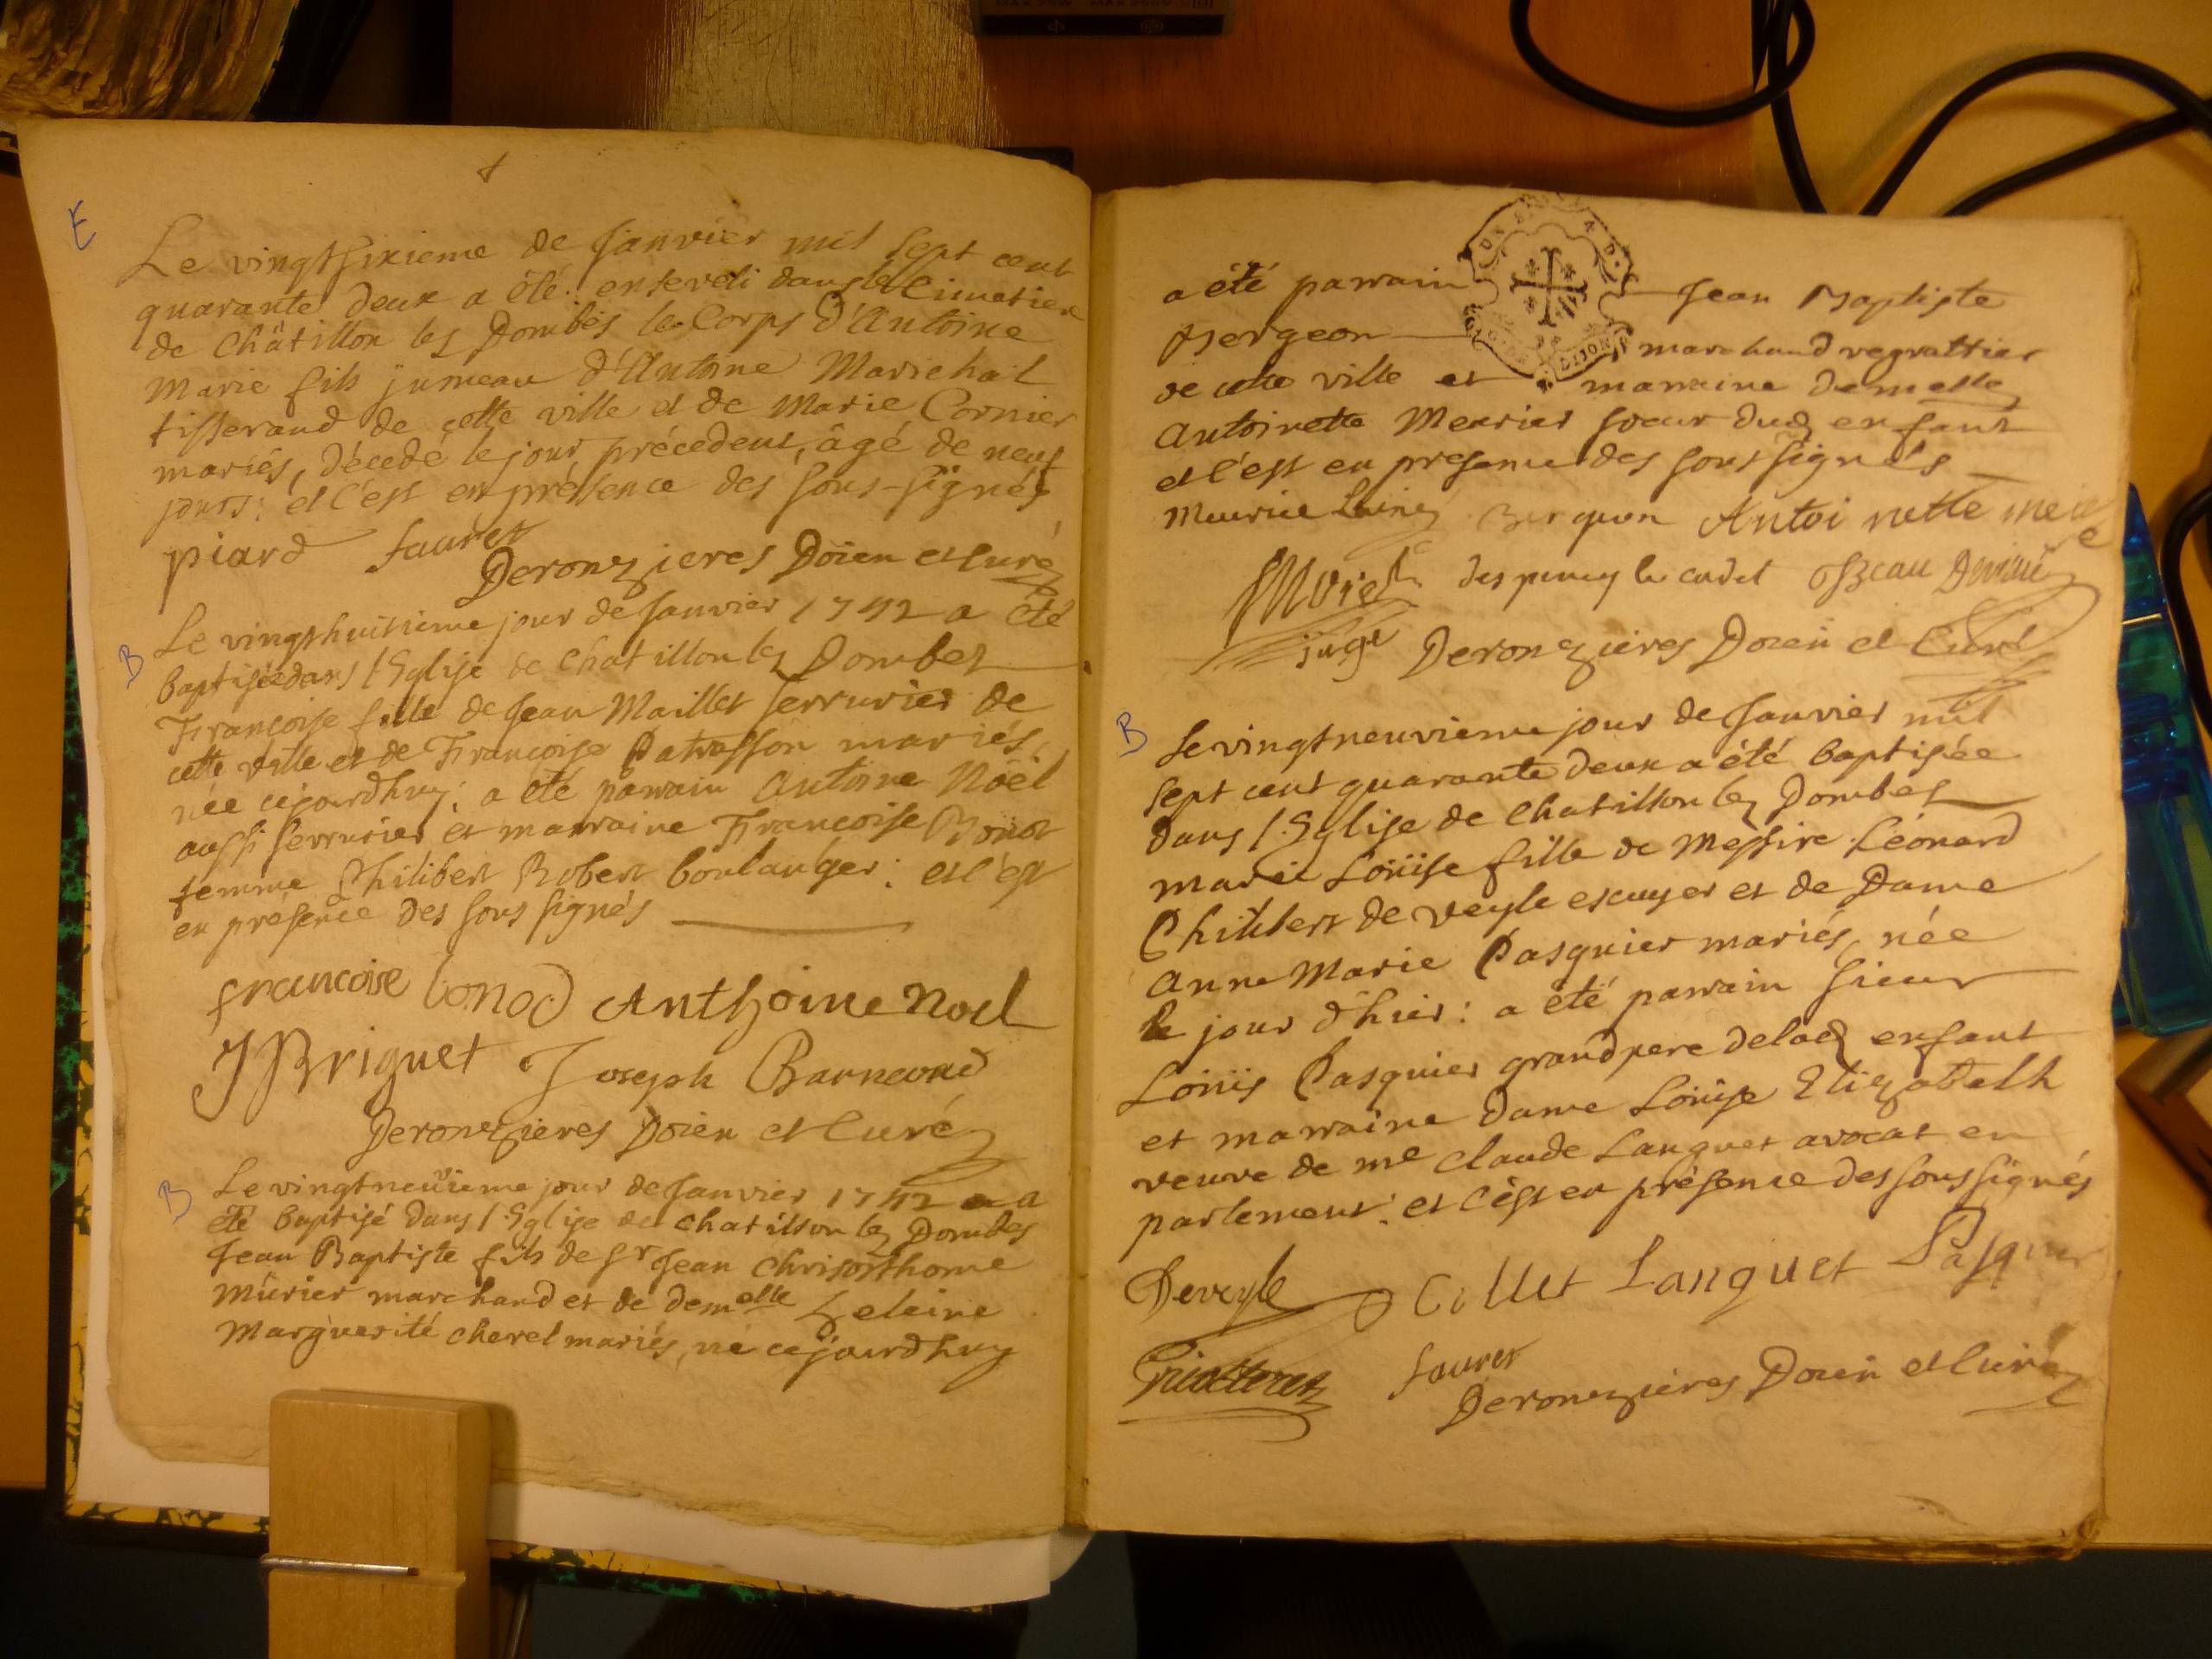 E
Le vingtsixieme de Janvier mil sept cent
quarante deux a été enseveli dans le Cimetier
de Châtillon les Dombes le Corps d'Antoine
Marie fils jumeau d'Antoine Marichal
tisserand de cette ville et de Marie Cornier
mariés, décedé le jour précedent, âgé de neuf
jours: et c'est en présence des sous-signés
piard fauret
Deronzieres Doïen et Curé
B
Le vingthuitieme jour de Janvier 1742 a été
baptisée dans l'Eglise de Chatillon lez Dombes
Françoise fille de Jean Maillet serrurier de
cette ville et de Françoise Patrasson mariés,
née cejourdhuy: a été parrain Antoine Noël
aussi serrurier et marraine Françoise Bonot
femme Philibert Robert boulanger: et c'est
en présence des sous signés
francoise bonod Anthoine Noel
JBriguet Joseph
Deronzieres Doïen et Curé
B
Le vingtneuvieme jour de Janvier 1742 a
été baptisé dans l'Eglise de Chatillon lez Dombes
Jean Baptiste fils de Sr Jean Chrisosthome
Mûrier marchand et de demelle heleine
Marguerite Cherel mariés, né cejourdhuy
a été parrain Jean Baptiste
Bergeon marchand regrattier
de cette ville et marraine demelle
Antoinette Meurier soeur dud enfant
et c'est en presence des sous signés
Meurier Bergeon Antoinette
des le cadet
juge Deronzieres Doïen et Curé
B
Le vingtneuvieme jour de Janvier mil
sept cent quarante deux a été baptisée
dans l'Eglise de Chatillon lez Dombes
marie Loüise fille de Messire Léonard
Philibert de Veyle escuyer et de Dame
Anne Marie Pasquier mariés, née
le jour d'hier: a été parrain sieur
Loüis Pasquier grandpere delad enfant
et marraine dame Loüise Elizabeth
veuve de me Claude Languet avocat en
parlement: et c'est en présence des sous signés
Deveyle Collet Languet Pasquier
fauret
Deronzieres Doïen et Curé